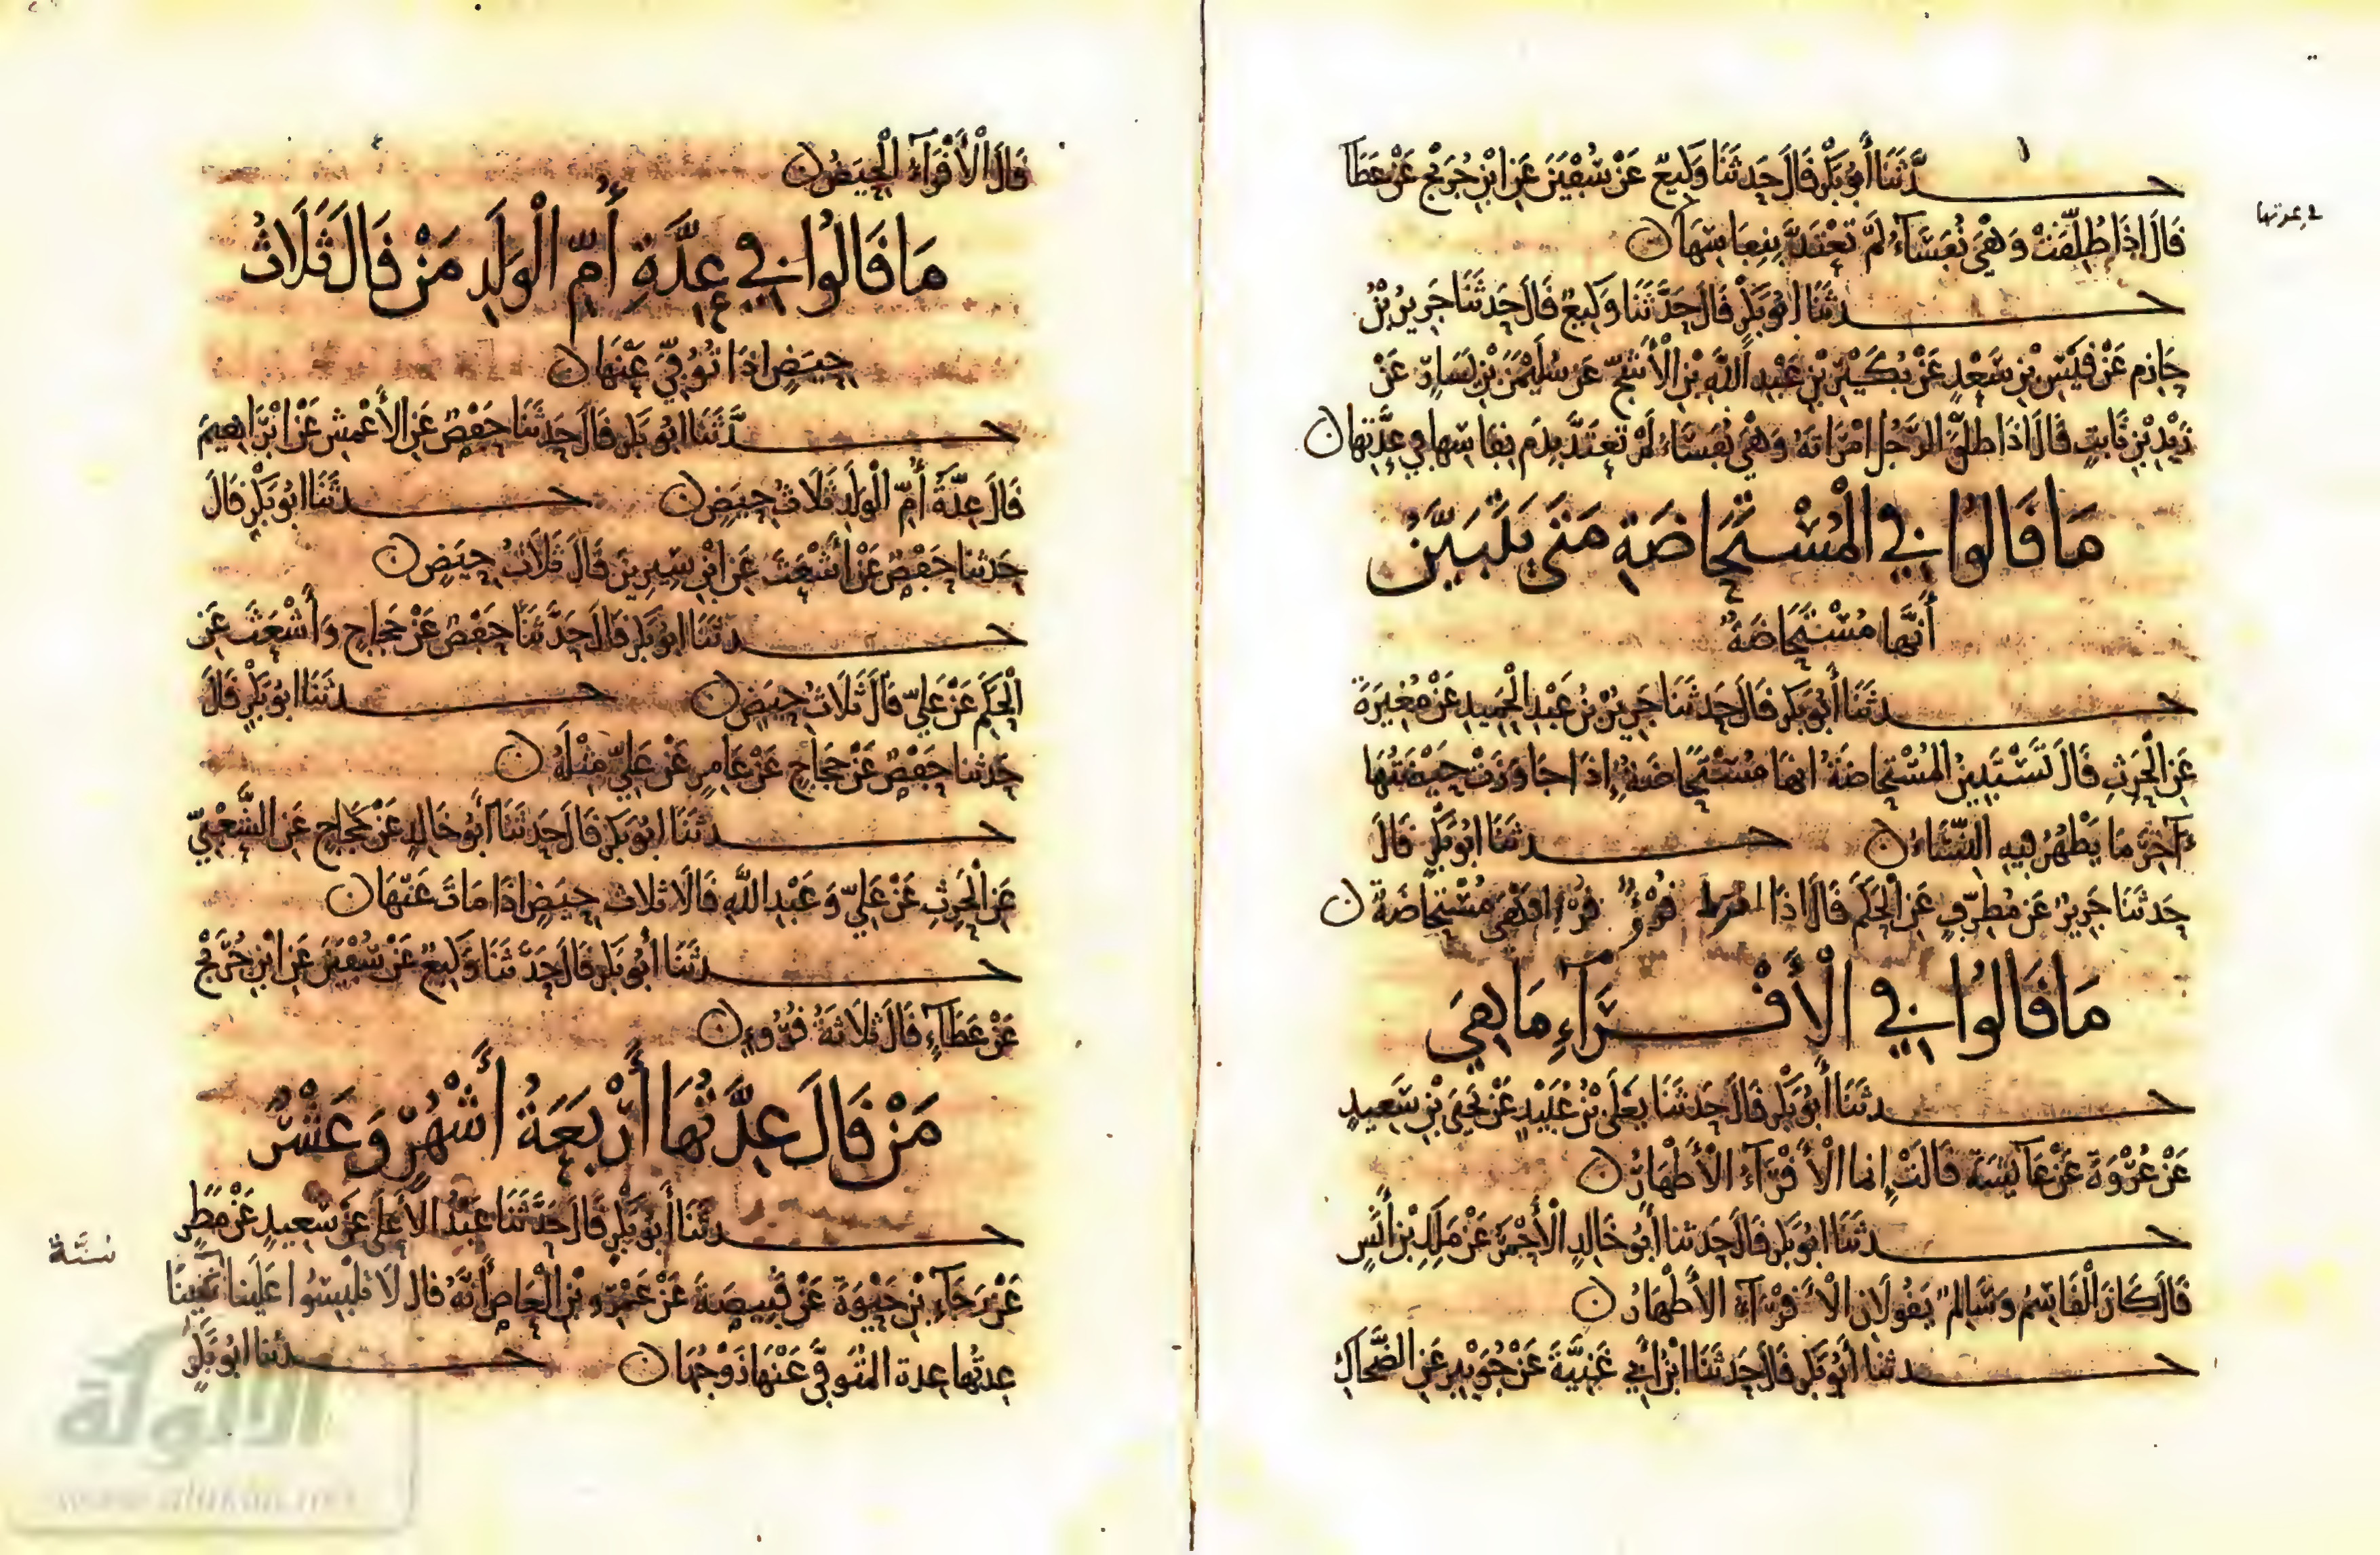 حَدَّثَنَا أَبُو بَكْرٍ قَالَ حَدثَنَا وَكِيعٌ عَنْ سُفْيَنَ عَنِ ابْنِ جُرَيْجٍ عَنْ عَطَآ
قَالَ إِذَا طُلِّقَتْ وَهْيَ نُفَسَآءُ لَمْ تَعْتَدَّ بِنِفَاسِهَا ن
في عدتها
حَدثَنَا ابُو بَكْرٍ قَالَ حَدَّثَنَا وَكِيعٌ قَالَ حَدثَنَا جَرِيرُ بْنُ
حَازِم عَنْ قَيْسِ بْنِ سَعْدٍ عَنْ بُكَيْرِ بْنِ عَبْدِ اللَّهِ بْنِ الْأَشَجِّ عَن سُلَيْمَنَ بْنِ يَسَارٍ عَنْ
زَيْدِ بْنِ ثَابِتٍ قَالَ اذَا طَلَّقَ الرَّجُلُ امْرَاتَهُ وَهْيَ نُفَسَاءُ لَمْ تَعْتَدَّ بِدَمِ نِفَاسِهَا فِي عِدَّتِهَا ن
مَا قَالُوا فِي الْمُسْتَحَاضَةِ مَتَى يَتَبَيَّنُ
أَنَّهَا مُسْتَحَاضَةٌ
حَدثَنَا أَبُو بَكْرٍ قَالَ حَدثَنَا جَرِيرُ بْنُ عَبْدِ الْحَمِيدِ عَنْ مُغِيرَةَ
عَنِ الْحَرِثِ قَالَ تَسْتَبِينُ الْمُسْتَحَاضَةُ انهَا مُسْتَحَاضَةٌ إِذَا جَاوَزَتْ حَيْضَتُهَا
ءَاخِرَ مَا يَطْهُرُ فِيهِ النِّسَاءُ ن حَدثَنَا ابُو بَكْرٍ قَالَ
حَدثَنَا جَرِيرٌ عَن مُطَرِّفٍ عَنِ الْحَكَمِ قَالَ اذَا قُرْءٌ قُرْءًا فَهْيَ مُسْتَحَاضَةٌ ن
مَا قَالُوا فِي الْأَقْرَآءِ مَا هِيَ
حَدثَنَا أَبُو بَكْرٍ قَالَ حَدثَنَا يَعْلَى بْنُ عُبَيْدٍ عَنْ يَحْيَى بْنِ سَعِيدٍ
عَنْ عُرْوَةَ عَنْ عَآيِشَةَ قَالَتْ إِنما الْأَقْرَآءُ الْأَطْهَارُ ن
حَدثَنَا ابُو بَكْرٍ قَالَ حَدثنَا أَبُو خَالِدٍ الْأَحْمَرُ عَنْ مَلِكِ بْنِ أَنَسٍ
قَالَ كَانَ الْقَاسِمُ وَسَالِمٌ يَقُولَانِ الْأَقْرَآءُ الْأَطْهَارُ ن
حَدثنَا أَبُو بَكْرٍ قَالَ حَدثَنَا ابْنُ أَبِي غَنِيَّةَ عَنْ جُوَيْبِرٍ عَنِ الضَّحَّاكِ
قَالَ الْأَقْرَآءُ الْحِيَضُ ن
مَا قَالُوا فِي عِدَّةِ أُمِّ الْوَلَدِ مَنْ قَالَ ثَلَاثُ
حِيَضٍ اذَا تُوُفِّيَ عَنْهَا ن
حَدَّثَنَا ابُو بَكْرٍ قَالَ حَدثَنَا حَفْصٌ عَنِ الأَعْمَشِ عَنْ ابْرَاهِيمَ
قَالَ عِدَّةُ أُمِّ الْوَلَدِ ثَلَاثُ حِيَضٍ ن حَدثَنَا ابُو بَكْرٍ قَالَ
حَدثنا حَفْصٌ عَنْ أَشْعَثَ عَنِ ابْنِ سِيرِينَ قَالَ ثَلَاثُ حِيَضٍ ن
حَدثَنَا ابُو بَكْرٍ قَالَ حَدَّثَنَا حَفْصٌ عَنْ حَجَاجٍ وَأَشْعَثَ عَنِ
الْحَكَمِ عَنْ عَلِيٍّ قَالَ ثَلَاثُ حِيَضٍ ن حَدثَنَا ابُو بَكْرٍ قَالَ
حَدثنا حَفْصٌ عَنْ حَجَاجٍ عَنْ عَامِرٍ عَنْ عَلِيٍّ مِثْلَهُ ن
حَدثَنَا ابُو بَكْرٍ قَالَ حَدثَنَا أَبُو خَالِدٍ عَنْ حَجَاجٍ عَنِ الشَّعْبِيِّ
عَنِ الْحَرِثِ عَنْ عَلِيٍّ وَعَبْدِ اللَّهِ قَالَا ثلاث حِيَضٍ اذَا مَاتَ عَنْهَا ن
حَدثَنَا أَبُو بَكْرٍ قَالَ حَدَّثَنَا وَكِيعٌ عَنْ سُفْيَنَ عَنِ ابْنِ جُرَيْجٍ
عَنْ عَطَآءٍ قَالَ ثَلَاثَةُ قُرُوءٍ ن
مَنْ قَالَ عِدَّتُهَا أَرْبَعَةُ أَشْهُرٍ وَعَشْرٌ
حَدثَنَا أَبُو بَكْرٍ قَالَ حَدَّثَنَا عَبْدُ الأَعْلَى عَنْ سَعِيدٍ عَنْ مَطَرٍ
عَنْ رَجَآءِ بْنِ حَيْوَةَ عَنْ قَبِيصَةَ عَنْ عَمْرِو بْنِ الْعَاصِ أَنَّهُ قال لَا تَلْبِسُوا عَلَيْنا
سنة
عِدتُها عِدة الْمُتَوَفَّى عَنْهَا زَوْجُهَا ن حَدثنا ابُو بَكْرٍ
الألوكة
www.alukah.net